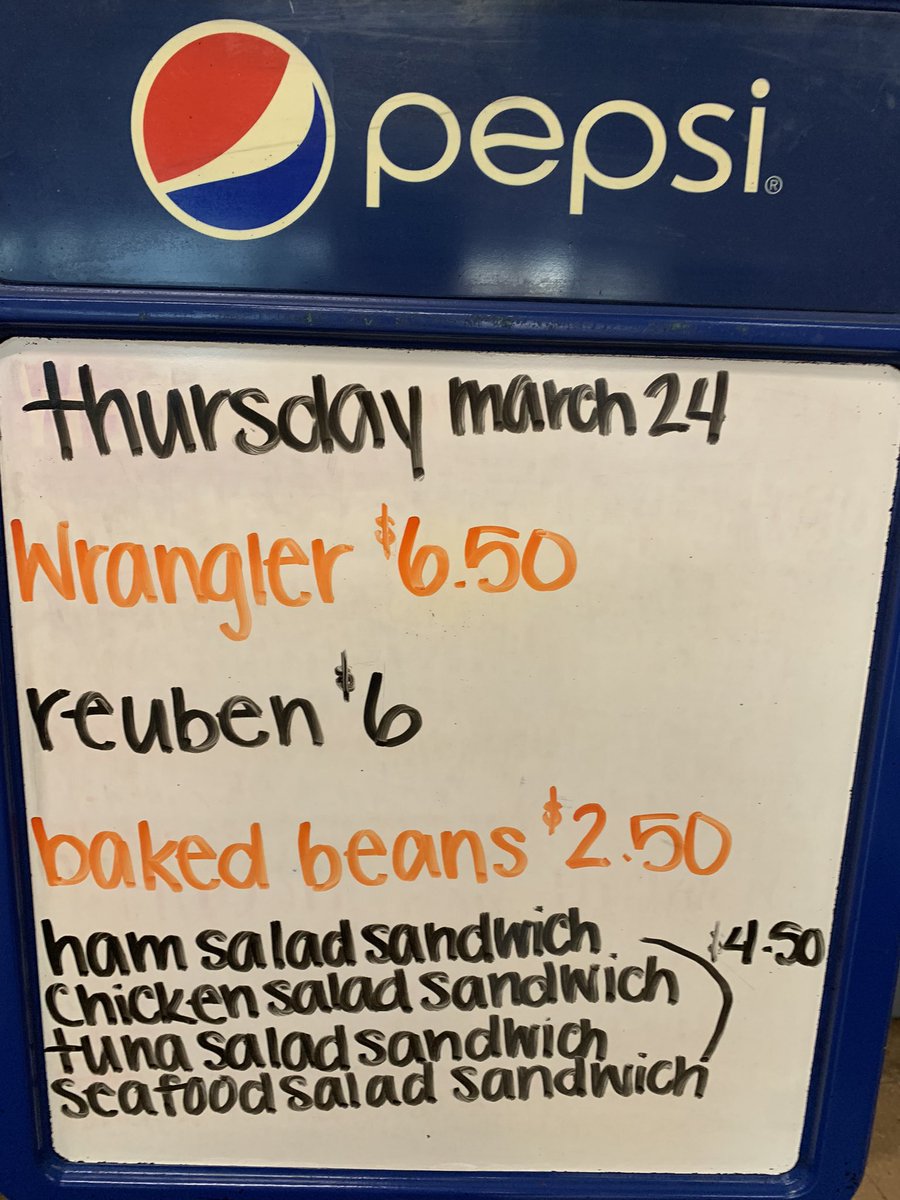 pepsi®
thursday march 24
Wrangler $6.50
reuben $6
baked beans $2.50
ham salad sandwich $4.50
Chicken salad sandwich
tuna salad sandwich
seafood salad sandwich